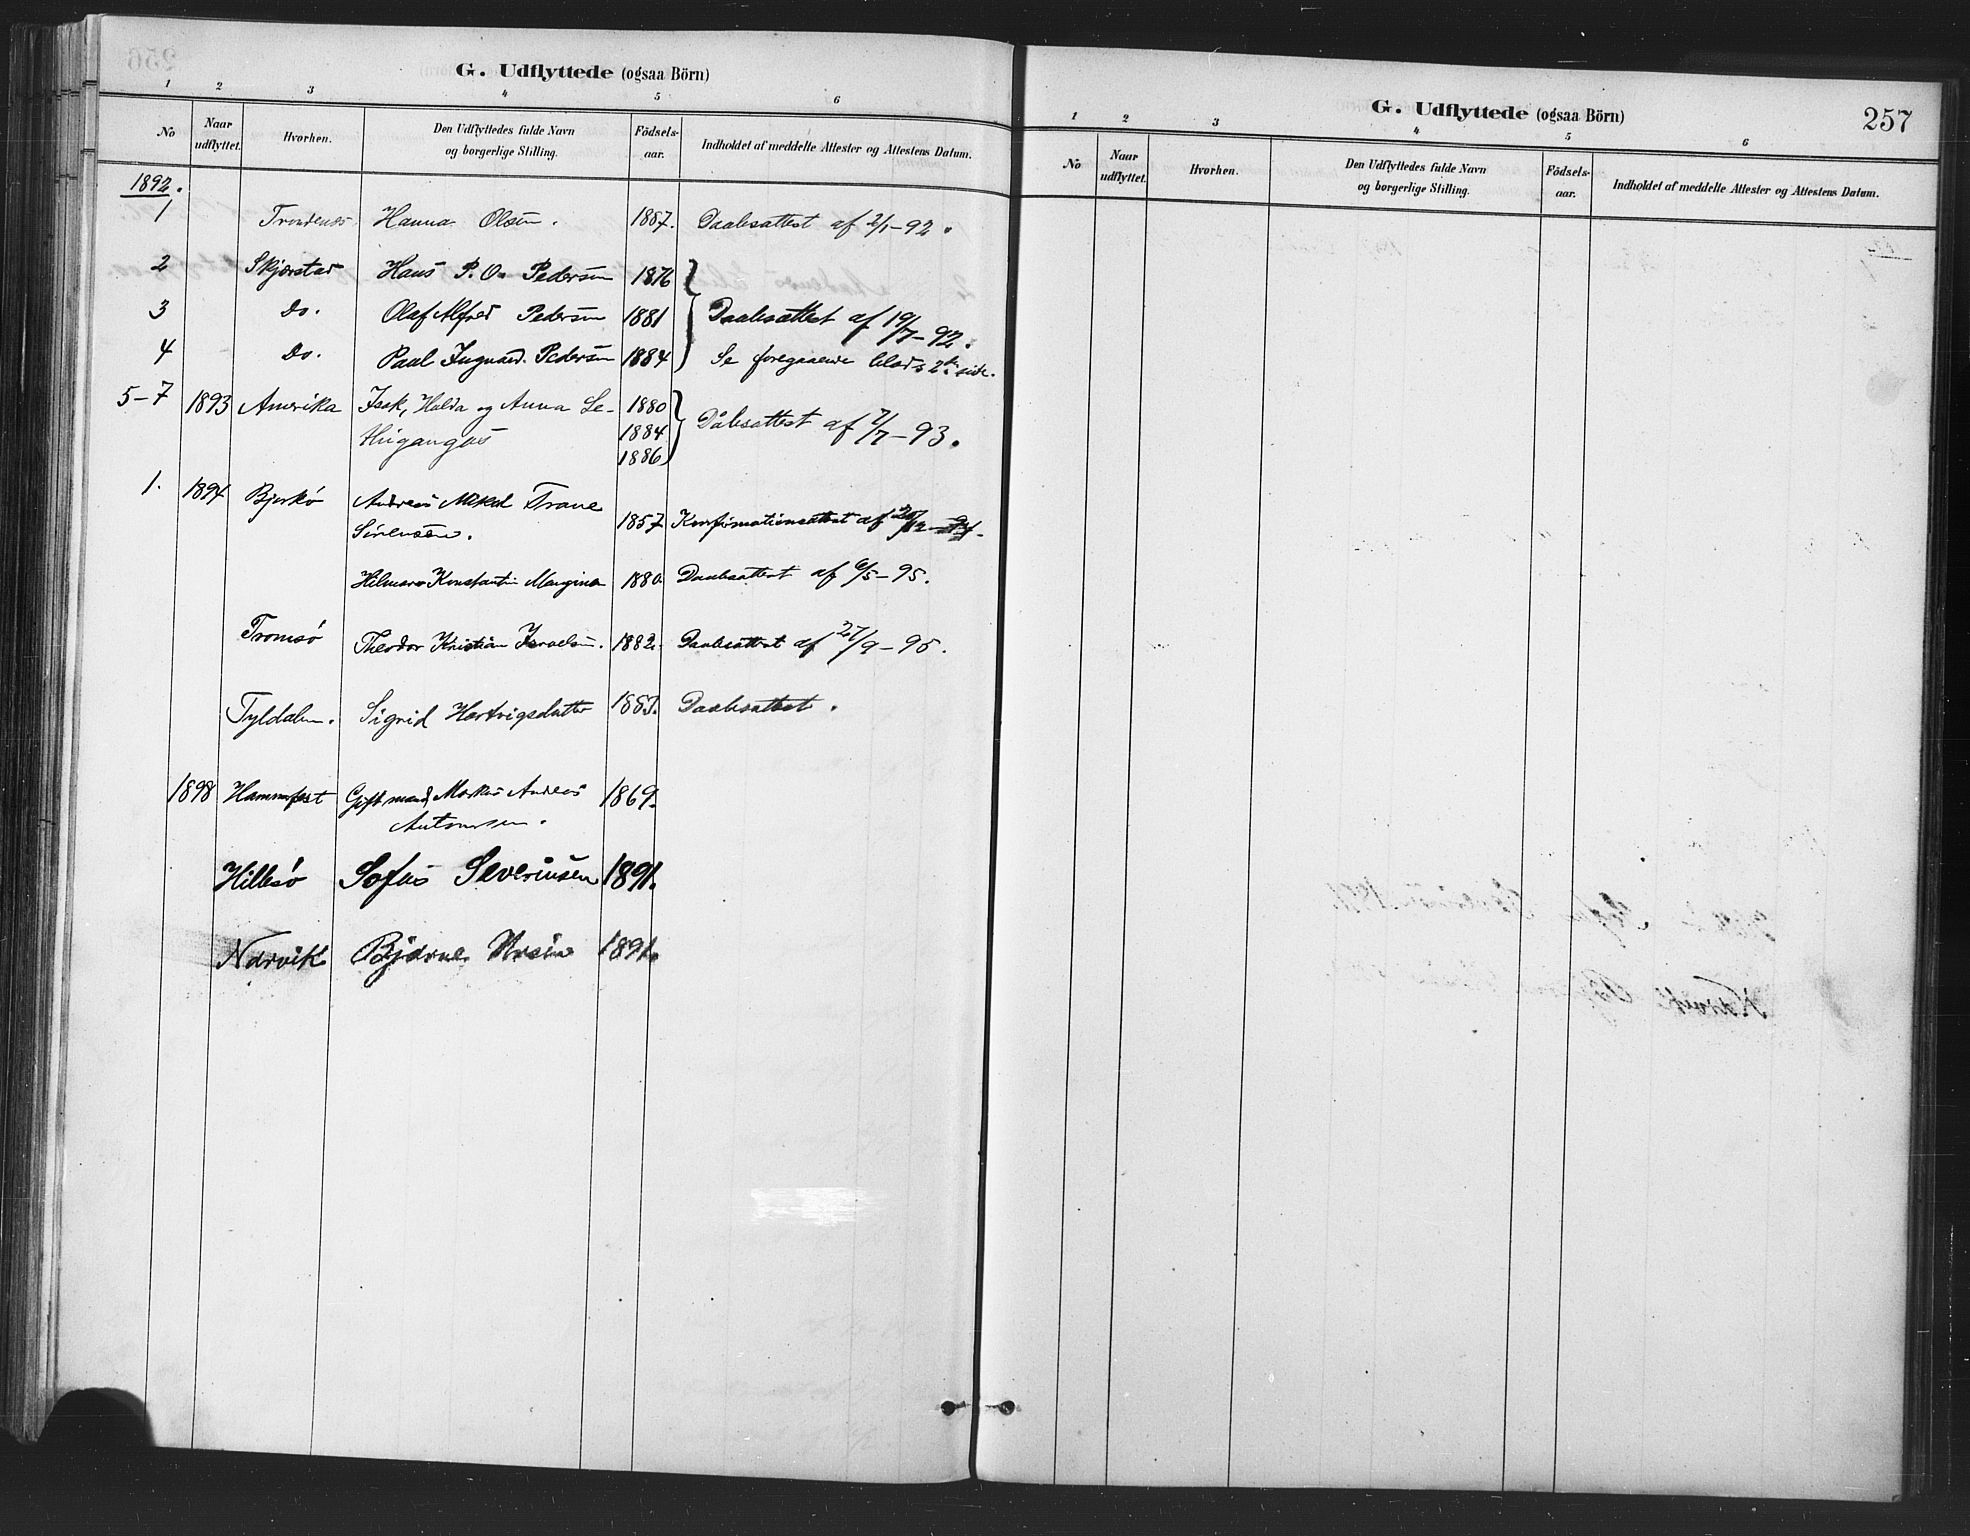 G. Udflyttede (ogsaa Börn)
1 2 3 4 5 6
No Naar udflyttet. Hvorhen. Den Udflyttedes fulde Navn og borgerlige Stilling. Födsels-aar. Indholdet af meddelte Attester og Attestens Datum.
1892.
1 Trondenæs Hanna Olsen. 1887. Daabsattest af 2/1-92.
2 Skjerstad Hans P. O. Pedersen 1876
3 Do. Olaf Alfred Pedersen 1881 Daabsattest af 19/7-92.
4 Do. Paal Ingvard Pedersen 1884 Se foregaaende blads 2den side.
5-7 1893 Amerika Isak, Hulda og Anna Se- 1880 Dåbsattest af 7/7-93.
1884
1886
1. 1894 Bjarkö Andreas Mikal Trane
Sörensen. 1857. Konfirmationsattest af
Hilmar Konstantin 1880. Daabsattest af 6/5-95.
Tromsö Theodor Kristian Israelsen. 1882. Daabsattest af 27/9-95.
Tyldalen. Sigrid Hartvigsdatter 1883. Daabsattest.
1898 Hammerfest Gift mand, Markus Andreas 1869.
Antonsen.
Hillesö Sofus Severinsen 1891.
Narvik Bjarne 1891.
G. Udflyttede (ogsaa Börn)
257
1 2 3 4 5 6
No Naar udflyttet. Hvorhen. Den Udflyttedes fulde Navn og borgerlige Stilling. Födsels-aar. Indholdet af meddelte Attester og Attestens Datum.